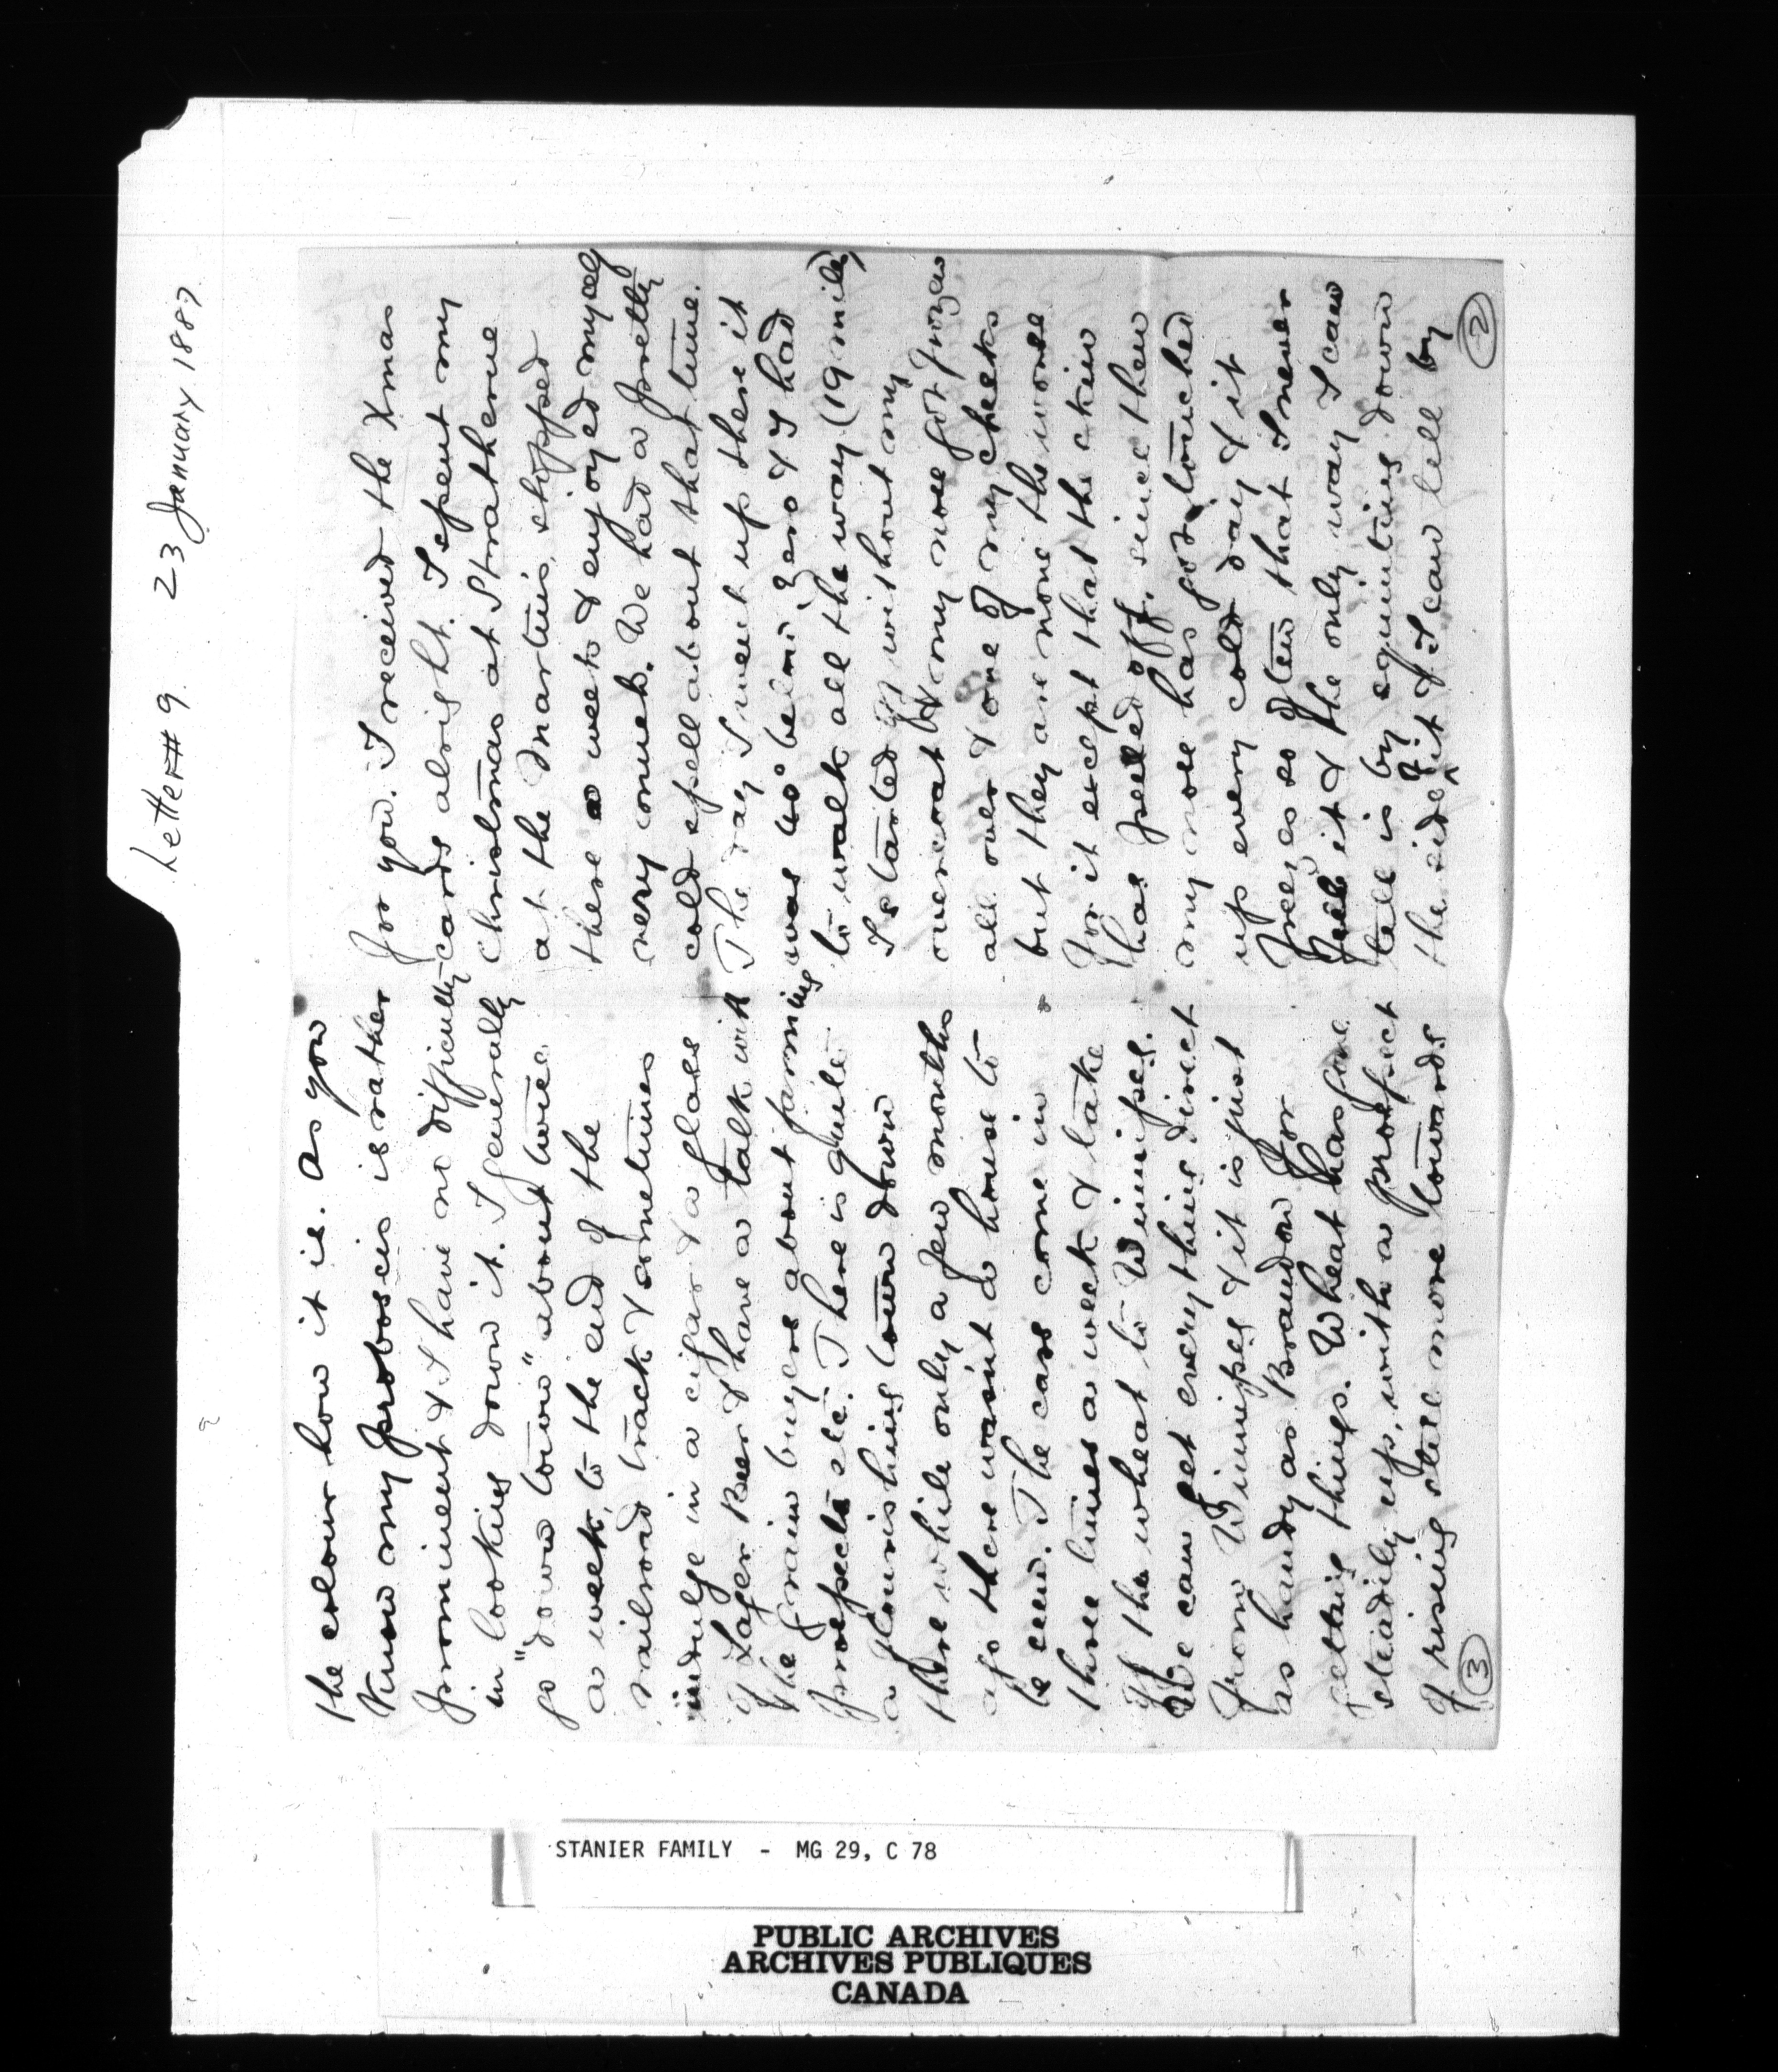 Letter # 9. 23 January 1887.
for you. I received the Xmas
cards alright. I spent my
Christmas at Strathclair
at the Martins, stopped
there a week & enjoyed myself
very much. We had a pretty
cold spell about that time.
The day I went up there it
was 40° below Zero & I had
to walk all the way (19 miles)
I started off without my
overcoat & my nose got froze
all over & one of my cheeks
but they are none the worse
for it except that the skin
has peeled off, since then
my nose has got touched
up every cold day & it
freezes so often that I never
feel it & the only way I can
tell is by squinting down
the side of it & I can tell by
2
the colour how it is. As you
know my proboscis is rather
prominent & I have no difficulty
in looking down it. I generally
go "down town" about twice
a week, to the end of the
railroad track & sometimes
indulge in a cigar & a glass
of Lager Beer & have a talk with
the grain buyers about farming
prospects etc. There is quite
a flourishing town down
there while only a few months
ago there wasn't a house to
be seen. The cars come in
three times a week & take
off the wheat to Winnipeg.
We can get everything direct
from Winnipeg & it is just
as handy as Brandon for
getting things. Wheat has gone
steadily up, with a prospect
of rising still more towards
3
STANIER FAMILY - MG 29, C 78
PUBLIC ARCHIVES
ARCHIVES PUBLIQUES
CANADA